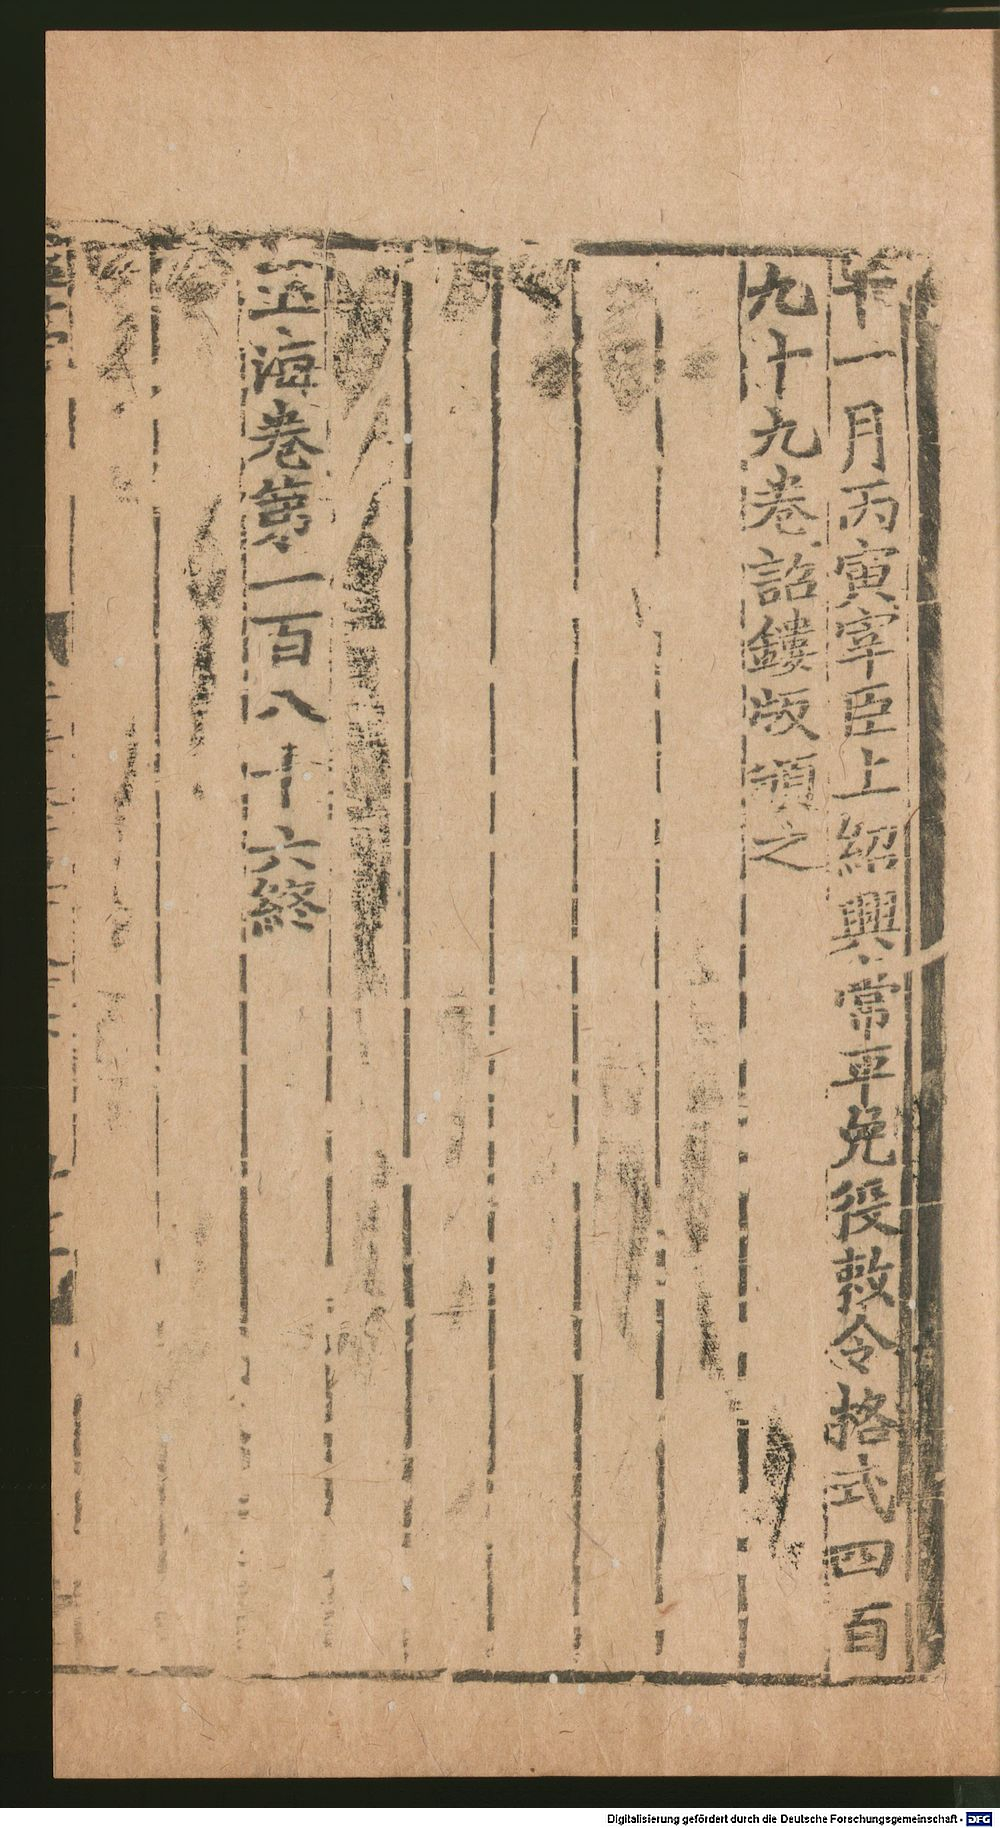 十一月丙寅宰臣上紹興常平免役敕令格式四百
九十九卷詔鏤版頒之
玉海卷第一百八十六終
Digitalisierung gefördert durch die Deutsche Forschungsgemeinschaft - DFG